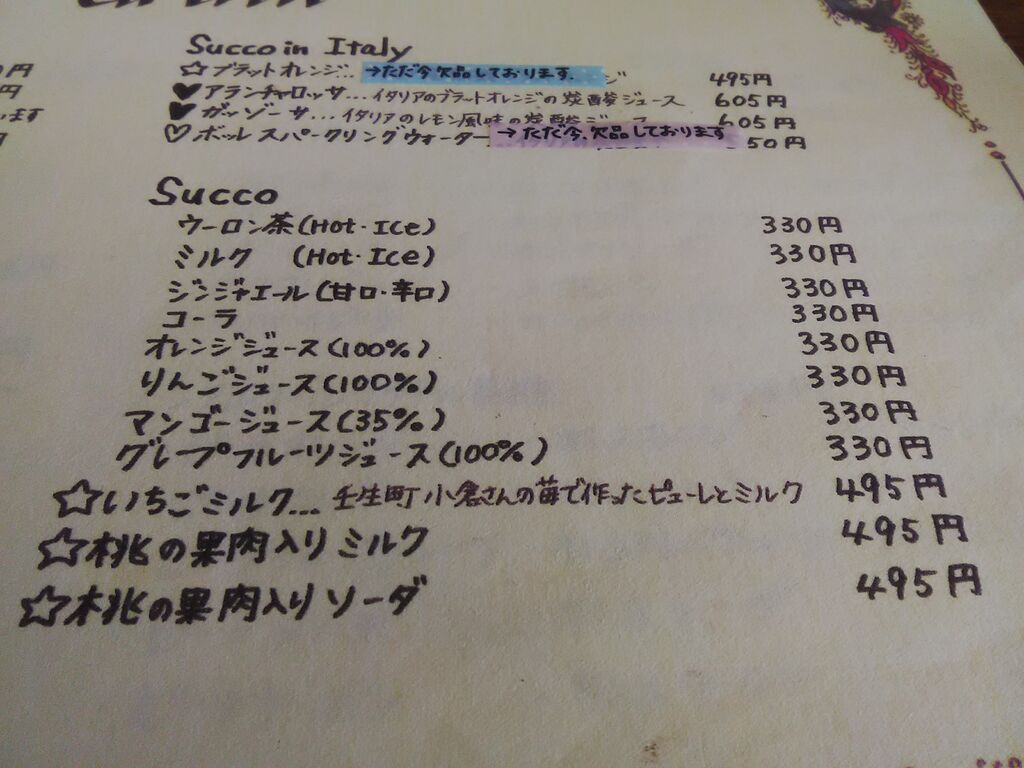 円
円
ます
円
Succo in Italy
☆ブラットオレンジ… →ただ今欠品しております。 ジ 495円
♥アランチャロッサ…イタリアのブラットオレンジの炭酸ジュース 605円
♥ガッゾーサ…イタリアのレモン風味の炭酸ジュース 605円
♡ボッレ スパークリングウォーター →ただ今、欠品しております 50円
Succo
ウーロン茶(Hot・Ice) 330円
ミルク (Hot・Ice) 330円
ジンジャエール(甘口・辛口) 330円
コーラ 330円
オレンジジュース(100%) 330円
りんごジュース(100%) 330円
マンゴージュース(35%) 330円
グレープフルーツジュース(100%) 330円
☆いちごミルク… 壬生町 小倉さんの苺で作ったピューレとミルク 495円
☆桃の果肉入りミルク 495円
☆桃の果肉入りソーダ 495円